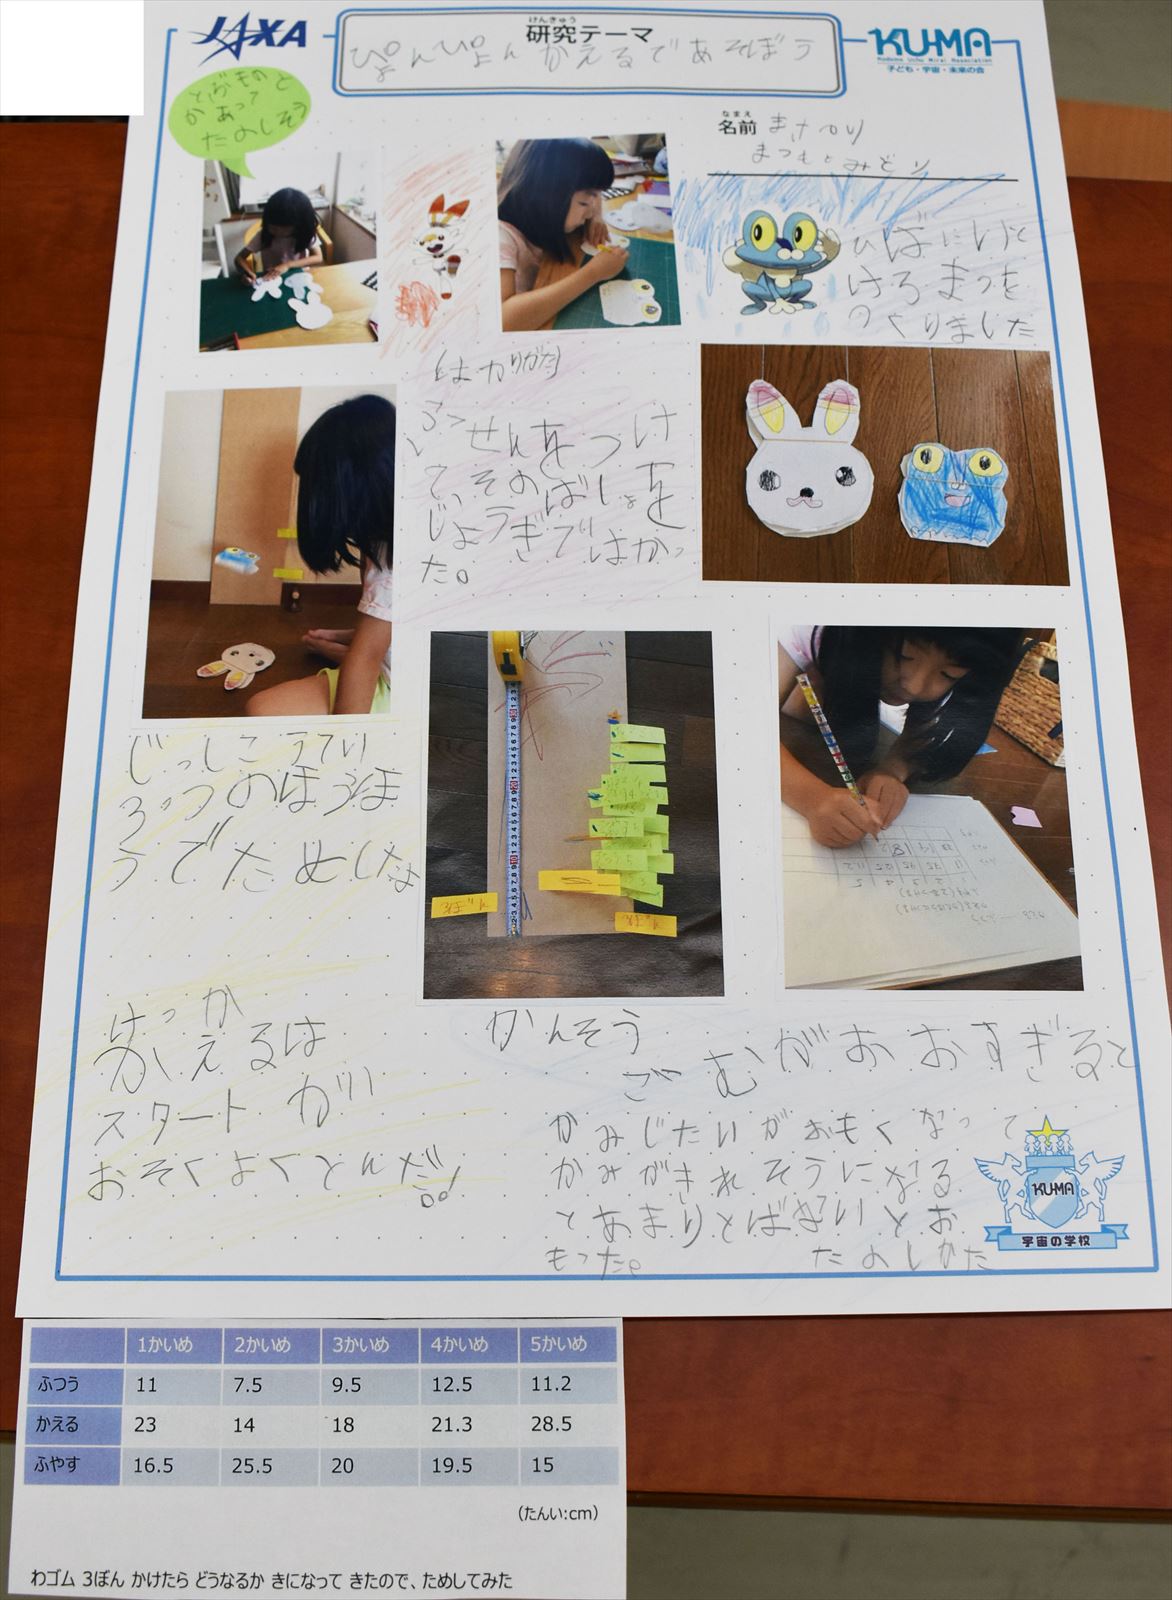 JAXA
けんきゅう
研究テーマ
ぴょんぴょんかえるであそぼう
KU-MA
Kodomo Uchu Mirai Association
子ども・宇宙・未来の会
とぶものと
かあって
たのしそう
なまえ
名前
まつもとみどり
ひばにいと
けろまつを
つくりました
(はかりかた)
ふっ
せんをつけ
て、そのばしょを
じょうぎではかっ
た。
じっしこうてい
3つのほうほ
うでためしたよ
3ぼん
けっか
かえるは
スタートが
おそくよくとんだ!
かんそう
ごむがおおすぎると
かみじたいがおもくなって
かみがきれそうになる
とあまりとばないとお
もった。
たのしかた
KU-MA
宇宙の学校
1かいめ 2かいめ 3かいめ 4かいめ 5かいめ
ふつう 11 7.5 9.5 12.5 11.2
かえる 23 14 18 21.3 28.5
ふやす 16.5 25.5 20 19.5 15
(たんい:cm)
わゴム 3ぼん かけたら どうなるか きになって きたので、ためしてみた